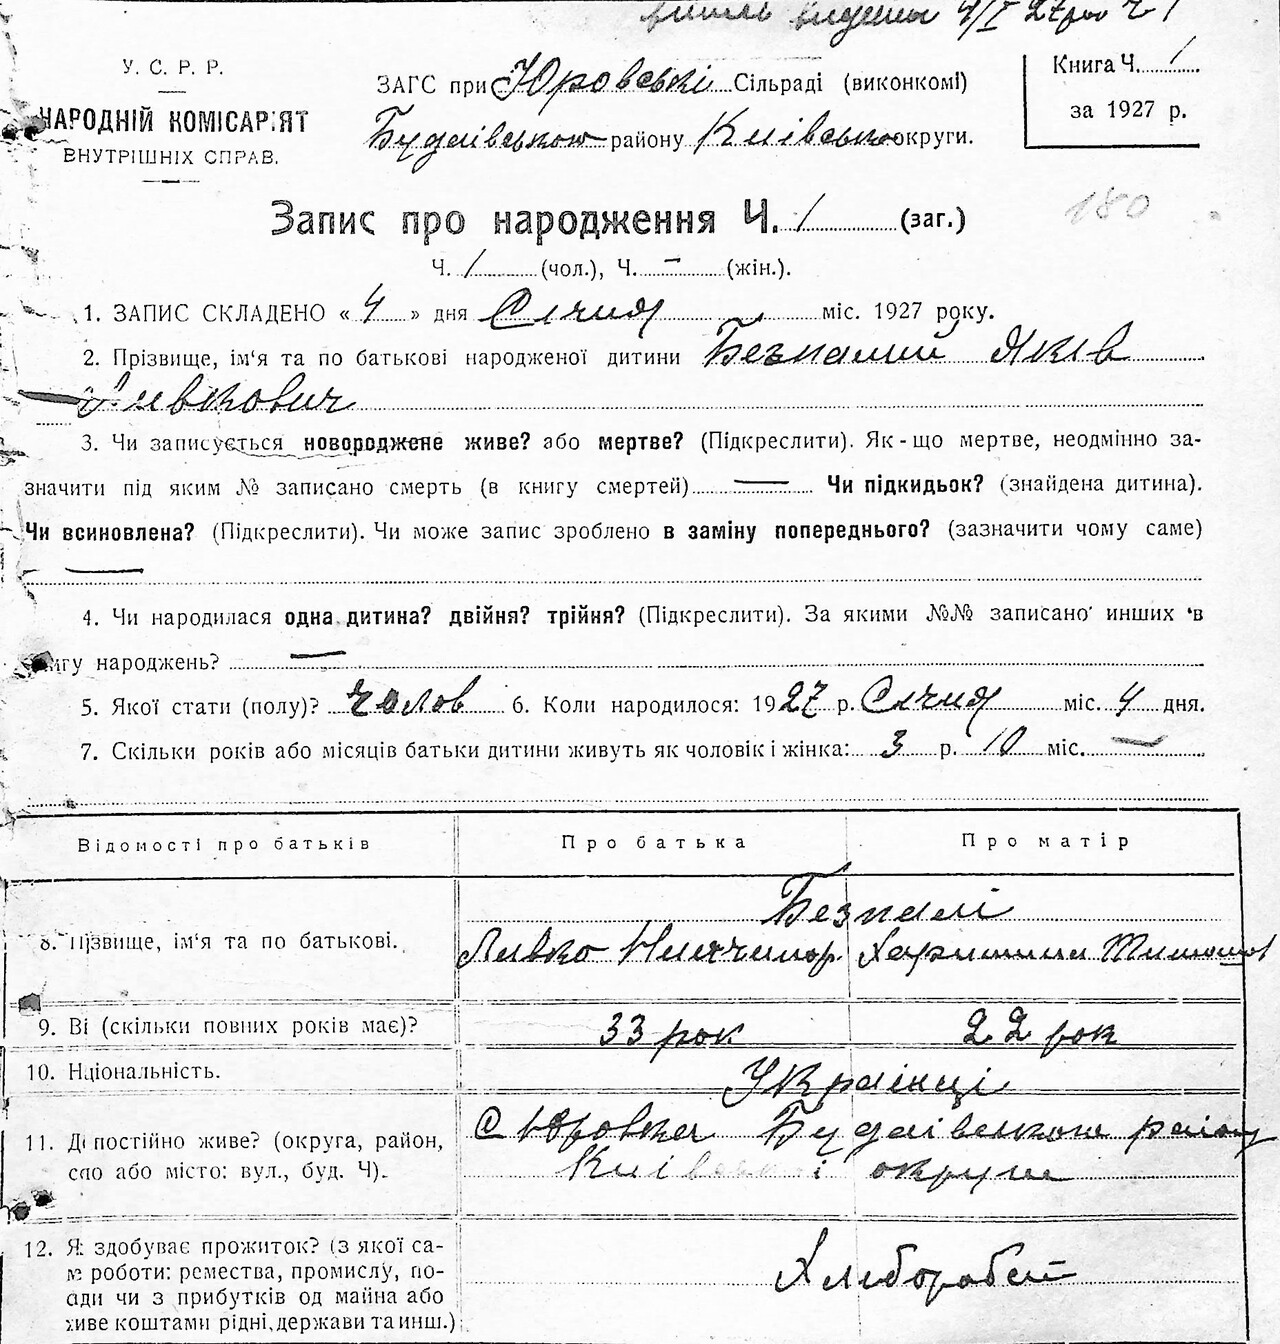 випис видана 4/I 27 року Ч 1
У. С. Р. Р.
НАРОДНІЙ КОМІСАРІЯТ
ВНУТРІШНІХ СПРАВ.
ЗАГС при Юровські Сільраді (виконкомі)
Будаівського району Київсько округи.
Книга Ч. 1
за 1927 р.
180
Запис про народження Ч. 1 (заг.)
Ч. 1 (чол.), Ч. - (жін.).
1. ЗАПИС СКЛАДЕНО « 4 » дня Січня міс. 1927 року.
2. Прізвище, ім'я та по батькові народженої дитини Безпалий Яків
Ливкович
3. Чи записується новороджене живе? або мертве? (Підкреслити). Як-що мертве, неодмінно за-
значити під яким № записано смерть (в книгу смертей) — Чи підкидьок? (знайдена дитина).
Чи всиновлена? (Підкреслити). Чи може запис зроблено в заміну попереднього? (зазначити чому саме)
—
4. Чи народилася одна дитина? двійня? трійня? (Підкреслити). За якими №№ записано инших в
книгу народжень? —
5. Якої стати (полу)? чолов 6. Коли народилося: 1927 р. Січня міс. 4 дня.
7. Скільки років або місяців батьки дитини живуть як чоловік і жінка: 3 р. 10 міс. —
Відомості про батьків Про батька Про матір
Безпалі
8. Прізвище, ім'я та по батькові. Ливко Ничипор. Харитина Тимошов
9. Вік (скільки повних років має)? 33 рок 22 рок
10. Національність. Українці
11. Де постійно живе? (округа, район, С Юровка Будаівського району
село або місто: вул., буд. Ч). Київської округи
12. Як здобуває прожиток? (з якої са-
ме роботи: ремества, промислу, по-
сади чи з прибутків од майна або
живе коштами рідні, держави та инш.) Хлиборобей